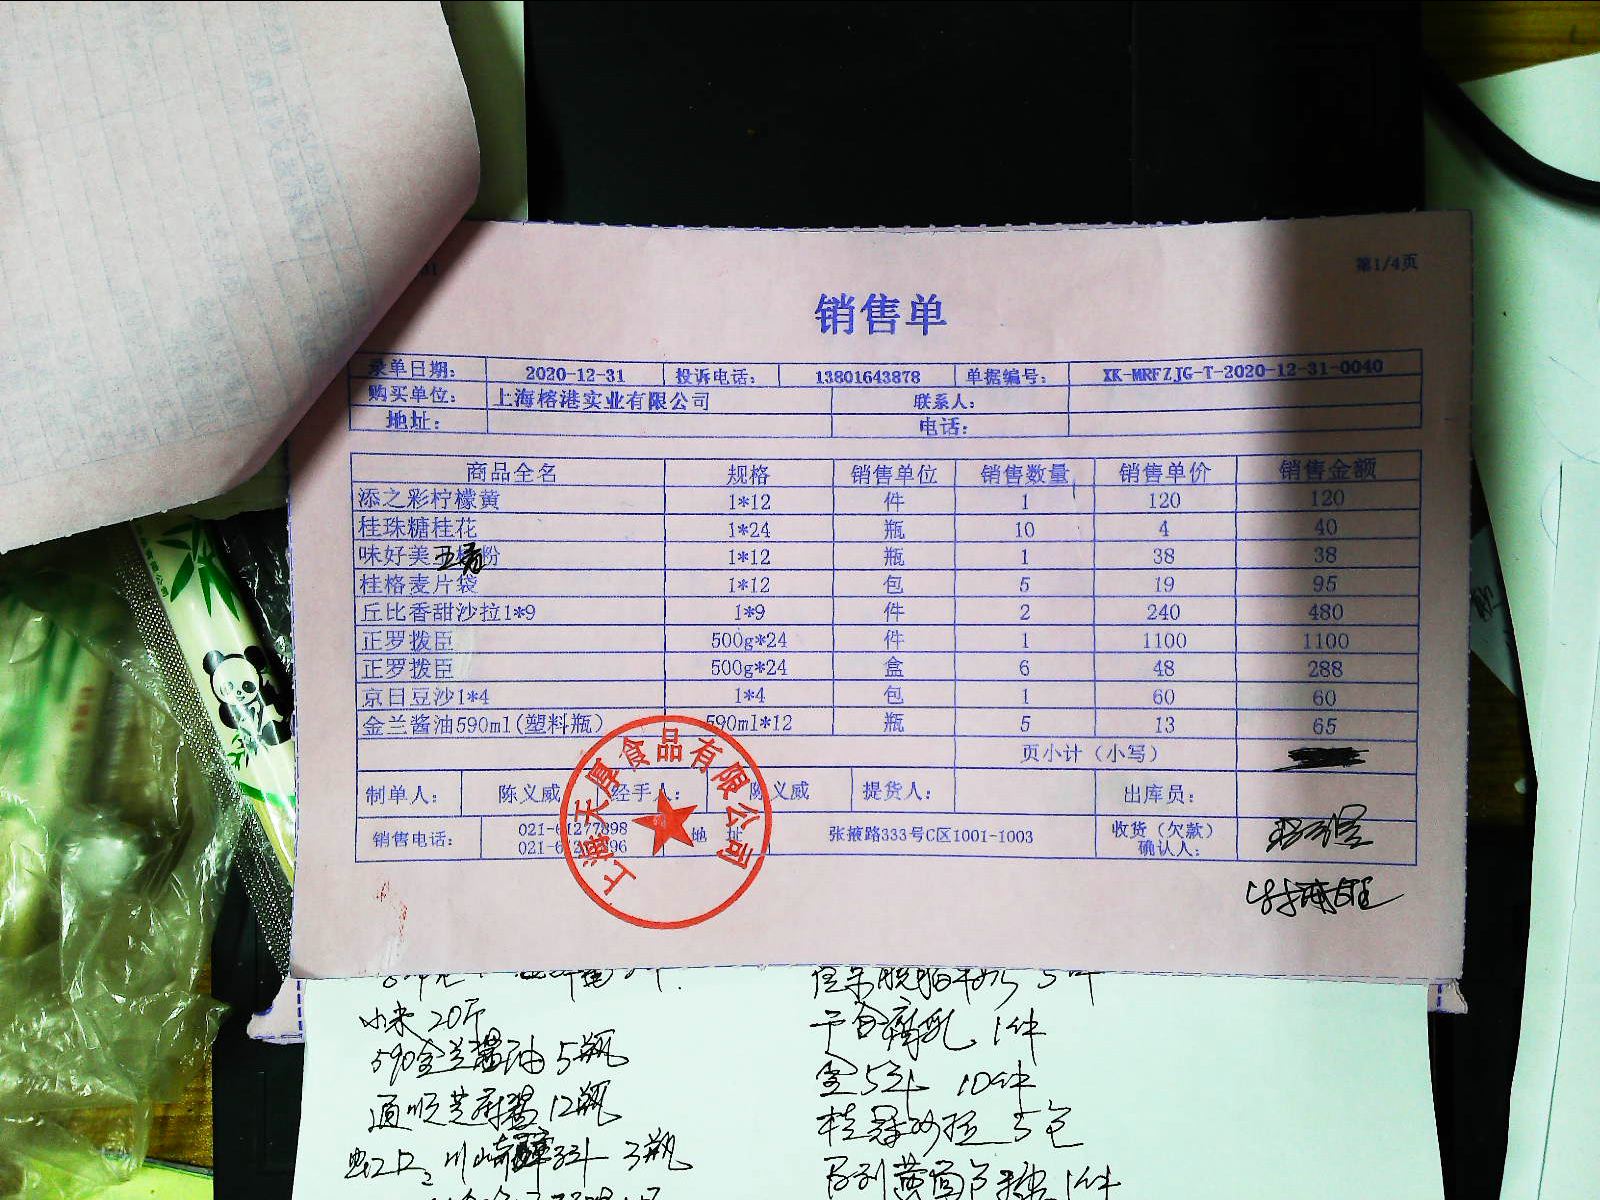 第1/4页
销售单
录单日期： 2020-12-31 投诉电话： 13801643878 单据编号： XK-MRFZJG-T-2020-12-31-0040
购买单位： 上海榕港实业有限公司 联系人：
地址： 电话：
商品全名 规格 销售单位 销售数量 销售单价 销售金额
添之彩柠檬黄 1*12 件 1 120 120
桂珠糖桂花 1*24 瓶 10 4 40
味好美五香粉 1*12 瓶 1 38 38
桂格麦片袋 1*12 包 5 19 95
丘比香甜沙拉1*9 1*9 件 2 240 480
正罗拨臣 500g*24 件 1 1100 1100
正罗拨臣 500g*24 盒 6 48 288
京日豆沙1*4 1*4 包 1 60 60
金兰酱油590ml(塑料瓶) 590ml*12 瓶 5 13 65
页小计（小写）
制单人： 陈义威 经手人： 陈义威 提货人： 出库员：
销售电话： 021-61277898 地 址 张掖路333号C区1001-1003 收货（欠款）
确认人：
上海天厚食品有限公司
小米 20斤
590金兰酱油 5瓶
通顺芝麻酱 12瓶
3瓶
1件
10件
5包
1件